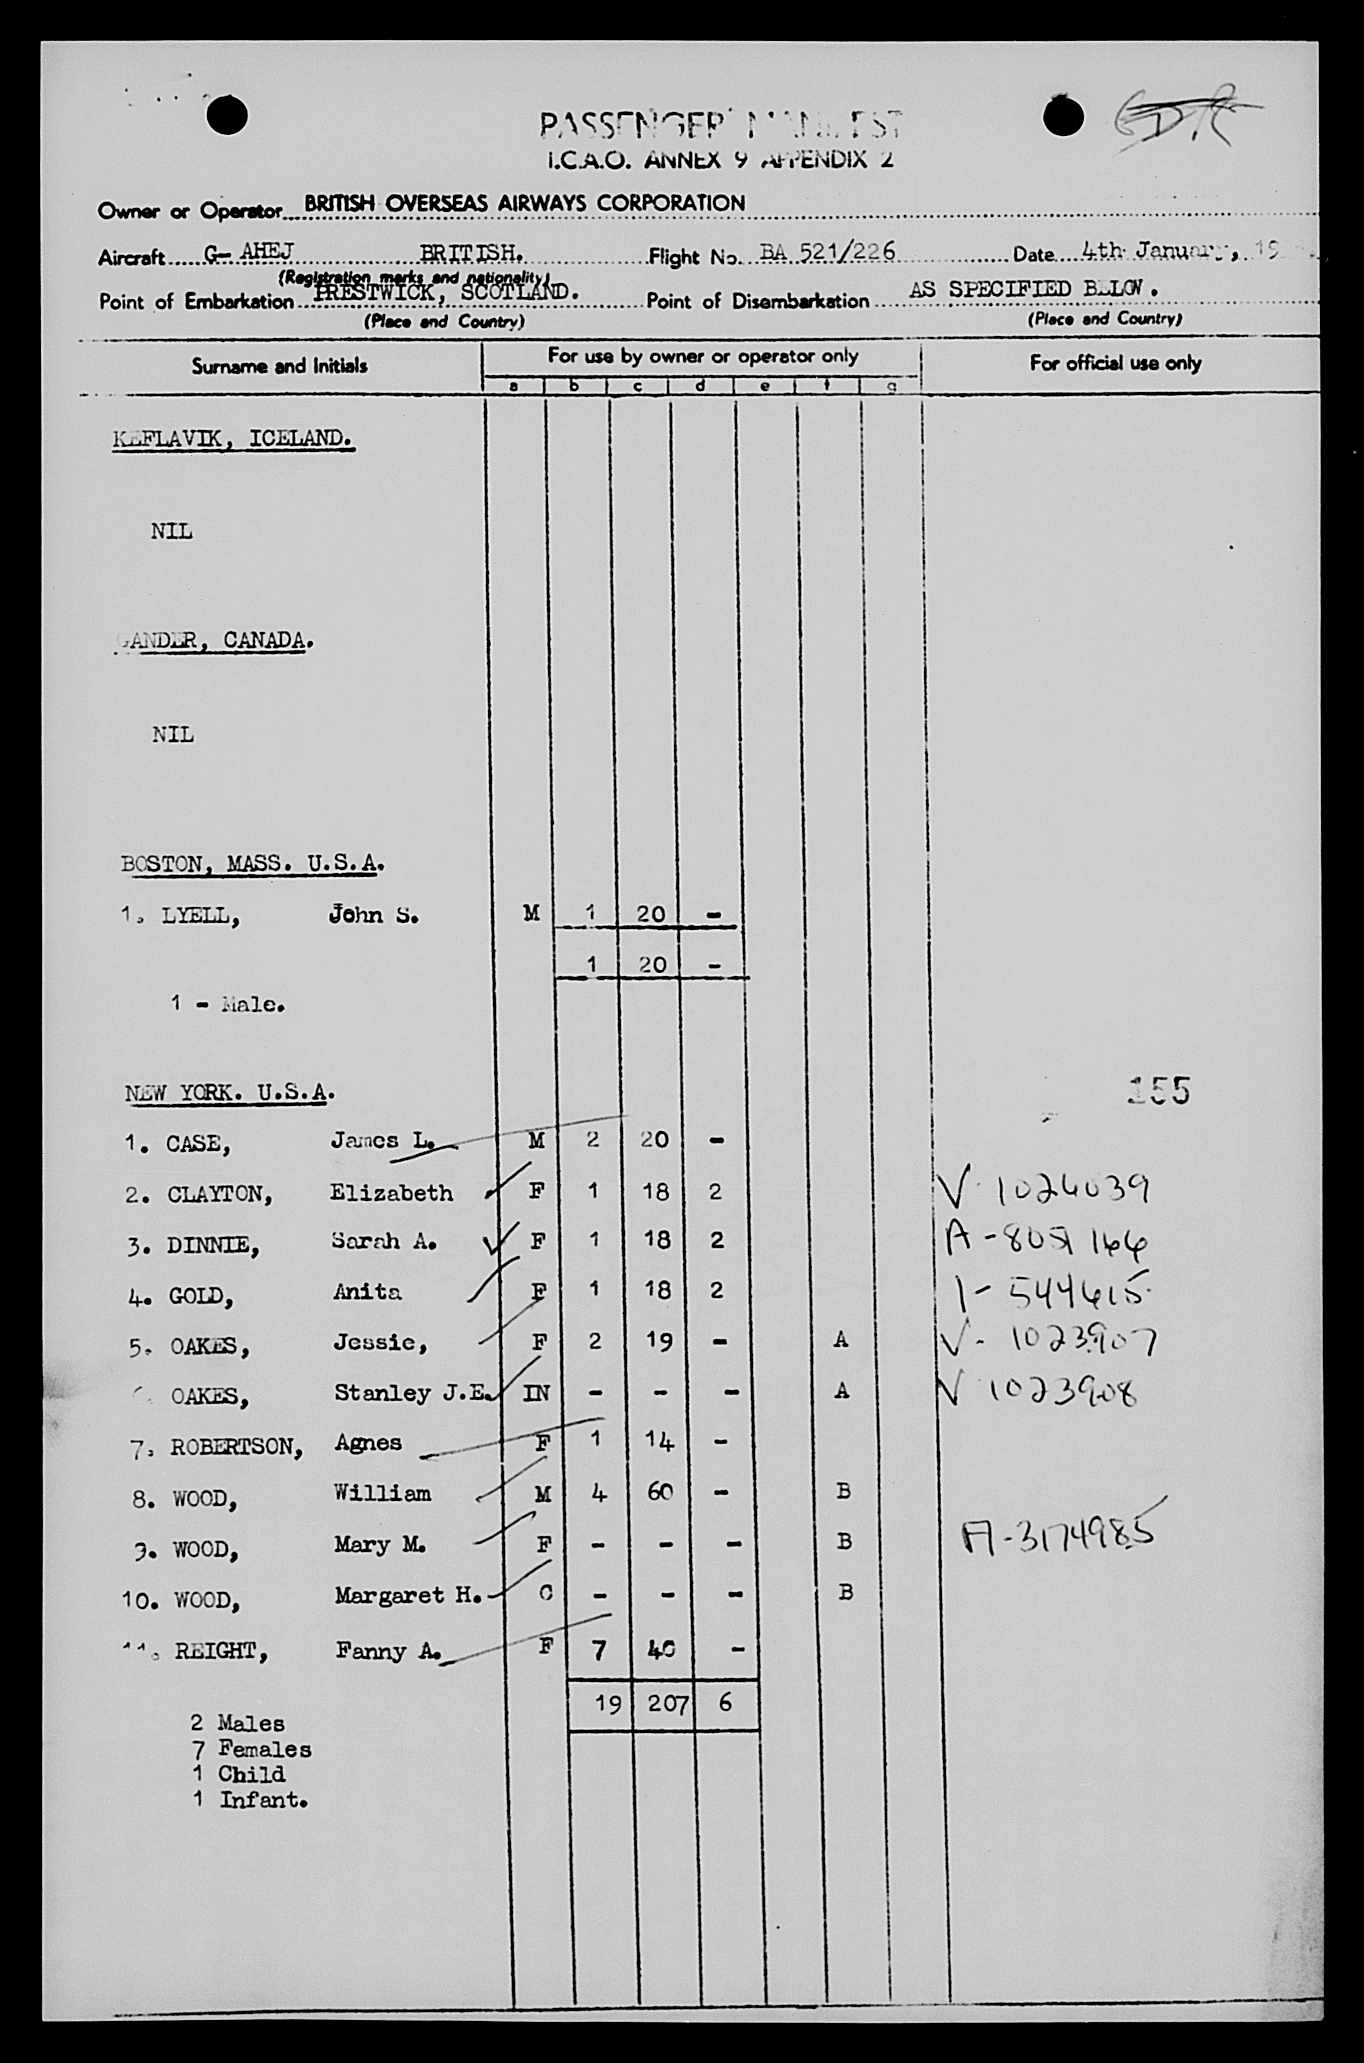 PASSENGER MANIFEST
I.C.A.O. ANNEX 9 APPENDIX 2
Owner or Operator BRITISH OVERSEAS AIRWAYS CORPORATION
Aircraft G- AHEJ BRITISH. Flight No. BA 521/226 Date 4th January, 19
(Registration marks and nationality)
Point of Embarkation PRESTWICK, SCOTLAND. Point of Disembarkation AS SPECIFIED BELOW.
(Place and Country) (Place and Country)
Surname and Initials For use by owner or operator only For official use only
a b c d e f g
KEFLAVIK, ICELAND.
NIL
GANDER, CANADA.
NIL
BOSTON, MASS. U.S.A.
1. LYELL, John S. M 1 20 -
1 20 -
1 - Male.
NEW YORK. U.S.A.
155
1. CASE, James L. M 2 20 -
2. CLAYTON, Elizabeth F 1 18 2 V-1024039
3. DINNIE, Sarah A. F 1 18 2 A-8051166
4. GOLD, Anita F 1 18 2 1-544615
5. OAKES, Jessie, F 2 19 - A V-1023907
6. OAKES, Stanley J.E. IN - - - A V 1023908
7. ROBERTSON, Agnes F 1 14 -
8. WOOD, William M 4 60 - B
9. WOOD, Mary M. F - - - B A-3174985
10. WOOD, Margaret H. C - - - B
11. REIGHT, Fanny A. F 7 40 -
19 207 6
2 Males
7 Females
1 Child
1 Infant.